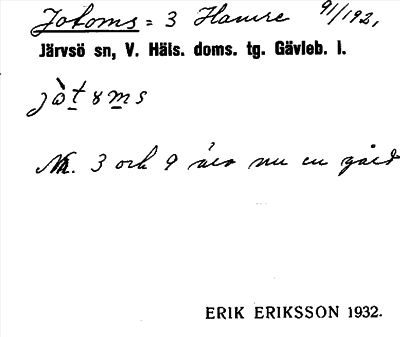 Jotoms = 3 Hamre 91/192,
Järvsö sn, V. Häls. doms. tg. Gävleb. l.
jò̀t8ms
Nr. 3 och 9 äro nu en gård
ERIK ERIKSSON 1932.